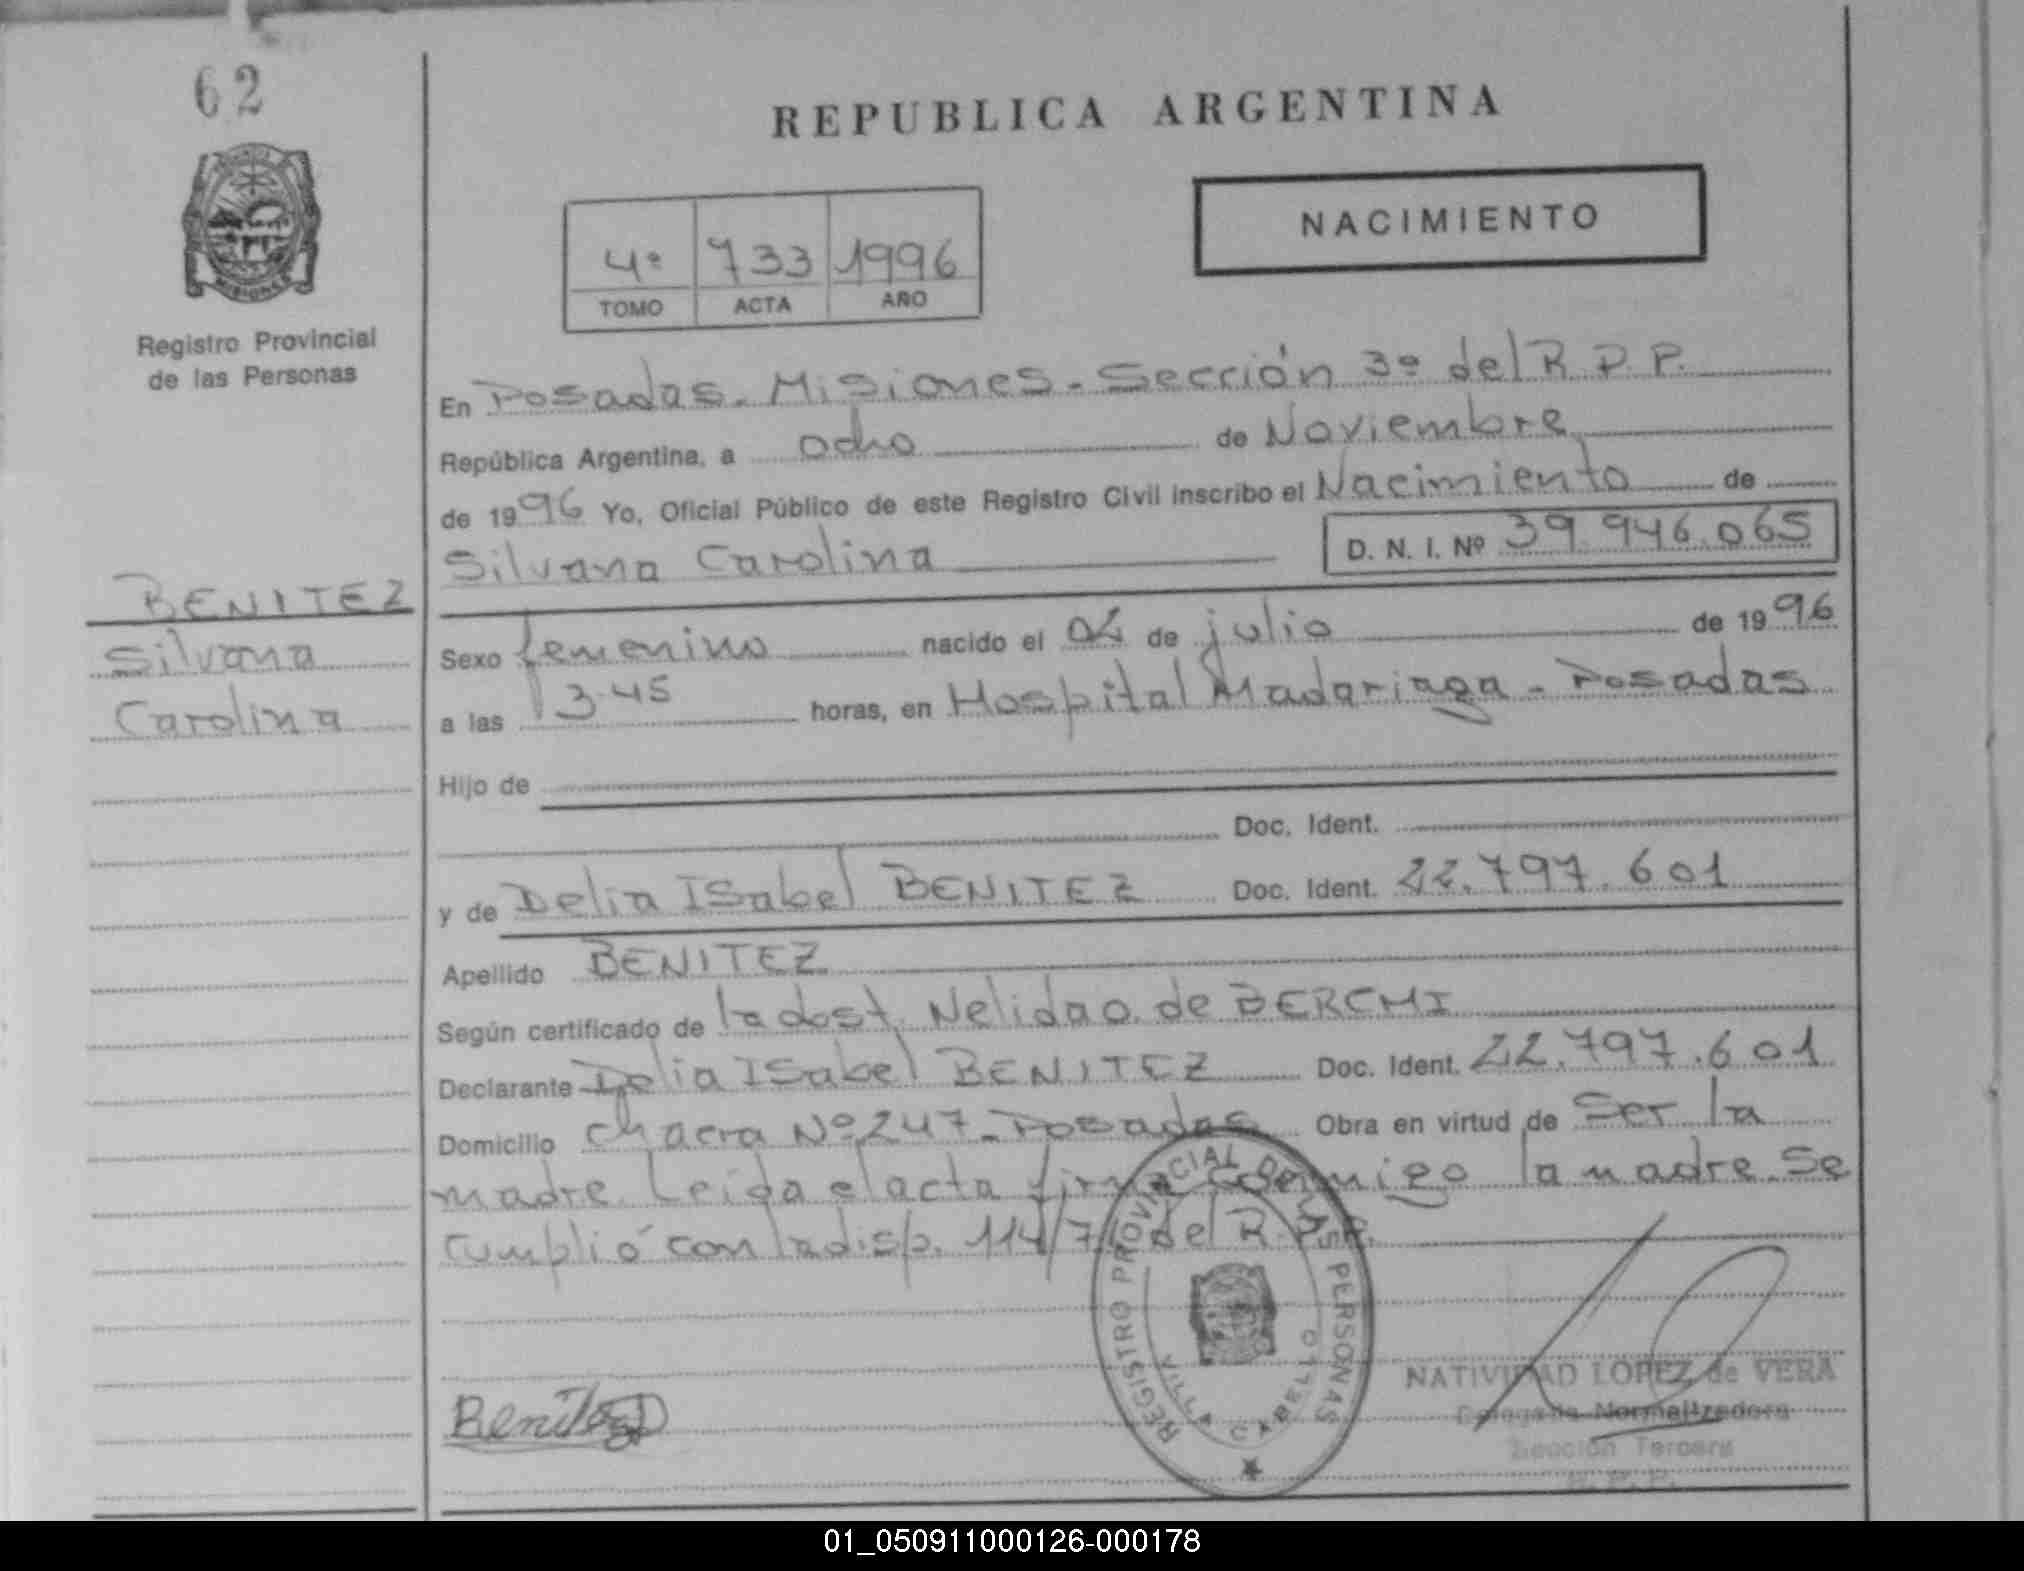 62
REPUBLICA ARGENTINA
NACIMIENTO
4º 733 1996
TOMO ACTA AÑO
MISIONES
Registro Provincial
de las Personas
En Posadas. Misiones. Sección 3º del R.P.P.
República Argentina, a ocho de Noviembre
de 1996 Yo, Oficial Público de este Registro Civil inscribo el Nacimiento de
Silvana Carolina D. N. I. Nº 39.946.065
BENITEZ
Silvana
Carolina
Sexo femenino nacido el 04 de julio de 1996
a las 3.45 horas, en Hospital Madariaga - Posadas
Hijo de
Doc. Ident.
y de Delia Isabel BENITEZ Doc. Ident. 22.797.601
Apellido BENITEZ
Según certificado de la obst. Nelida de
Declarante Delia Isabel BENITEZ Doc. Ident. 22.797.601
Domicilio Chacra Nº 247 - Posadas Obra en virtud de Ser la
madre. Leida el acta firma conmigo la madre. Se
cumplió con la disp. 114/7 del R.P.P.
REGISTRO PROVINCIAL DE LAS PERSONAS
VILLA CABELLO
Benitez D
NATIVIDAD LOPEZ de VERA
Delegada Normalizadora
Sección Tercera
R. P. P.
01_050911000126-000178